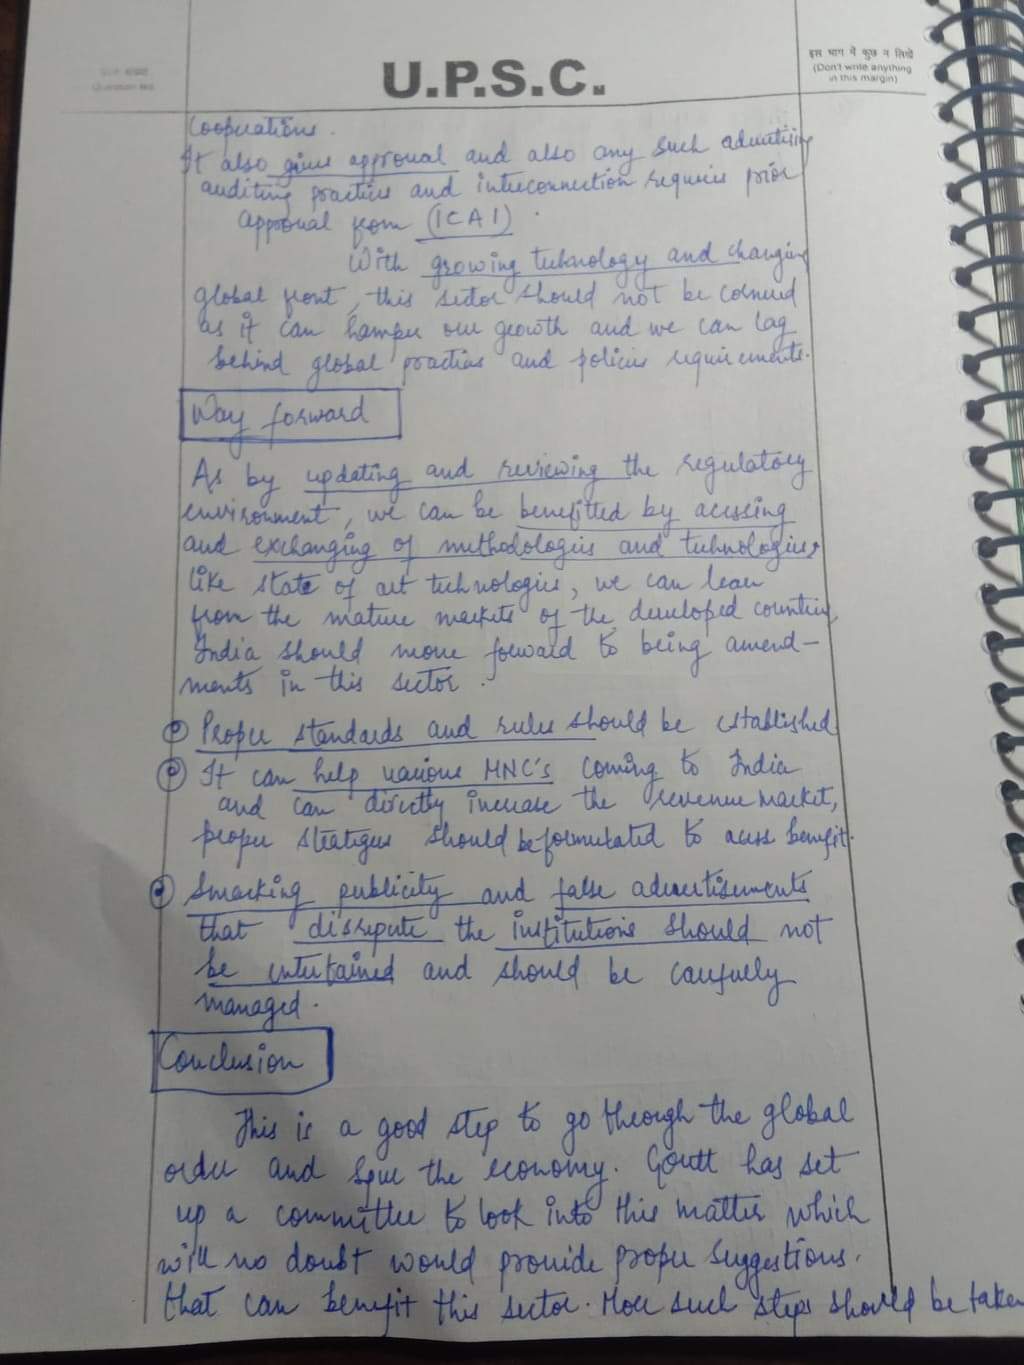 U.P.S.C.
इस भाग में कुछ न लिखें
(Don't write anything
in this margin)
Cooperations.
It also gives approval and also any such advertising
auditing practices and interconnection requires prior
approval from (ICAI).
With growing technology and changing
global front, this sector should not be cornered
as it can hamper our growth and we can lag
behind global practices and policies requirements.
Way forward
As by updating and reviewing the regulatory
environment, we can be benefitted by accessing
and exchanging of methodologies and technologies,
like state of art technologies, we can learn
from the mature markets of the developed countries,
India should move forward to being amend-
ments in this sector.
Proper standards and rules should be established
It can help various MNC's coming to India
and can directly increase the revenue market,
proper strategies should be formulated to access benefit.
Smacking publicity and false advertisements
that disrepute the institutions should not
be entertained and should be carefully
managed.
Conclusion
This is a good step to go through the global
order and the economy. Govtt has set
up a committee to look into this matter which
will no doubt would provide proper suggestions.
that can benefit this sector. More such steps should be taken